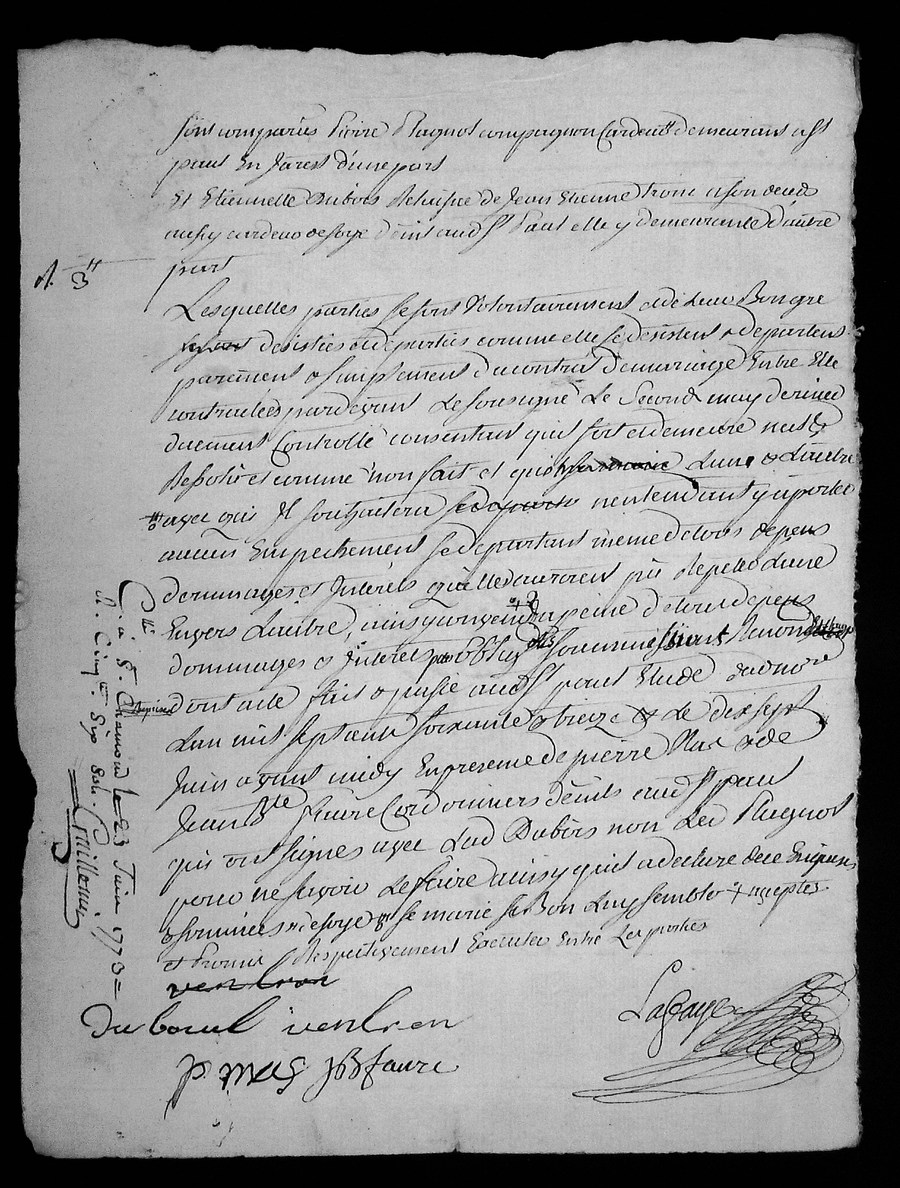 Sont comparus Pierre Plagnot compagnon Cardeur demeurant a St
paul En Jarest d'une part
Et Etiennette Dubois Relaissée de Jean Etienne
aussy cardeur de soye d'eint aud St Paul elle y demeurante d'autre
part
Lesquelles parties se sont Volontairement et de Leur Bon gré
desisties et departies comme elle se desistent & departent
purement & simplement du contrat de marriage Entre Elle
contractées pardevant Le sousigné Le Second may dernier
duement Controllé consentant quil soit et demeure nul &
Resolu et comme non fait et que l'une & L'autre
avec qui Il souhaitera n'entendant y aporter
aucun Empechement se departant meme de tous depens
dommages et Interets quelle auroient pu repeter L'une
Envers L'autre, ainsy convenu a peine de tous depens
dommages & Interets par obligon
Dont acte fait & passé aud St paul Etude du d nore
L'an mil sept cent soixante & treize & Le dix sept
Juin avant midy En presence de pierre Mas & de
Jean Bte faure Cordonniers d'eints aud St paul
qui ont signes avec Lad Dubois non Led Plagnot
pour ne sçavoir Le faire ainsy quil a declare de ce Enquis
& sommés + de soye se marie si Bon Luy semble + acceptes
et Promis Respectivement Executer Entre Les parties
Duboeuf
Lafaye
p. mas JB faure
R. 3 #
C. lle à St. Chamond le 23 Juin 1773 =
R. Cinq. Six Sols.